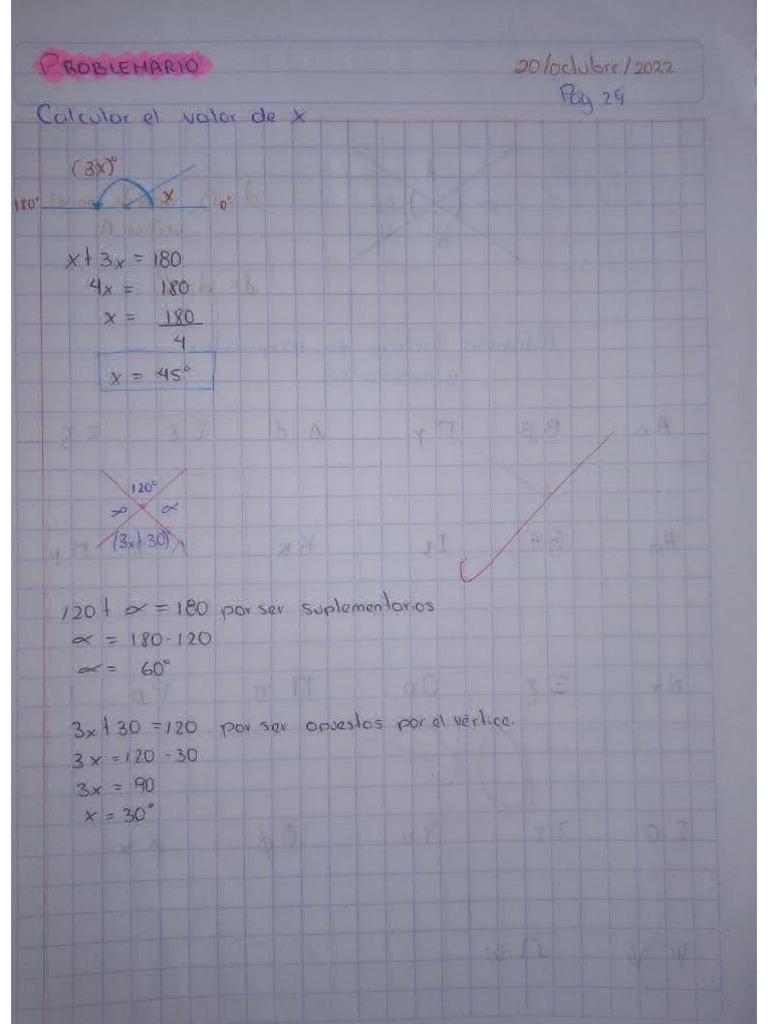 PROBLEMARIO
20/octubre/2022
Pág 29
Calcular el valor de x
(3x)°
180° x 0°
x + 3x = 180
4x = 180
x = 180
4
x = 45°
120°
∝ ∝
(3x+30)°
120 + ∝ = 180 por ser suplementarios
∝ = 180-120
∝ = 60°
3x + 30 = 120 por ser opuestos por el vértice.
3x = 120 - 30
3x = 90
x = 30°